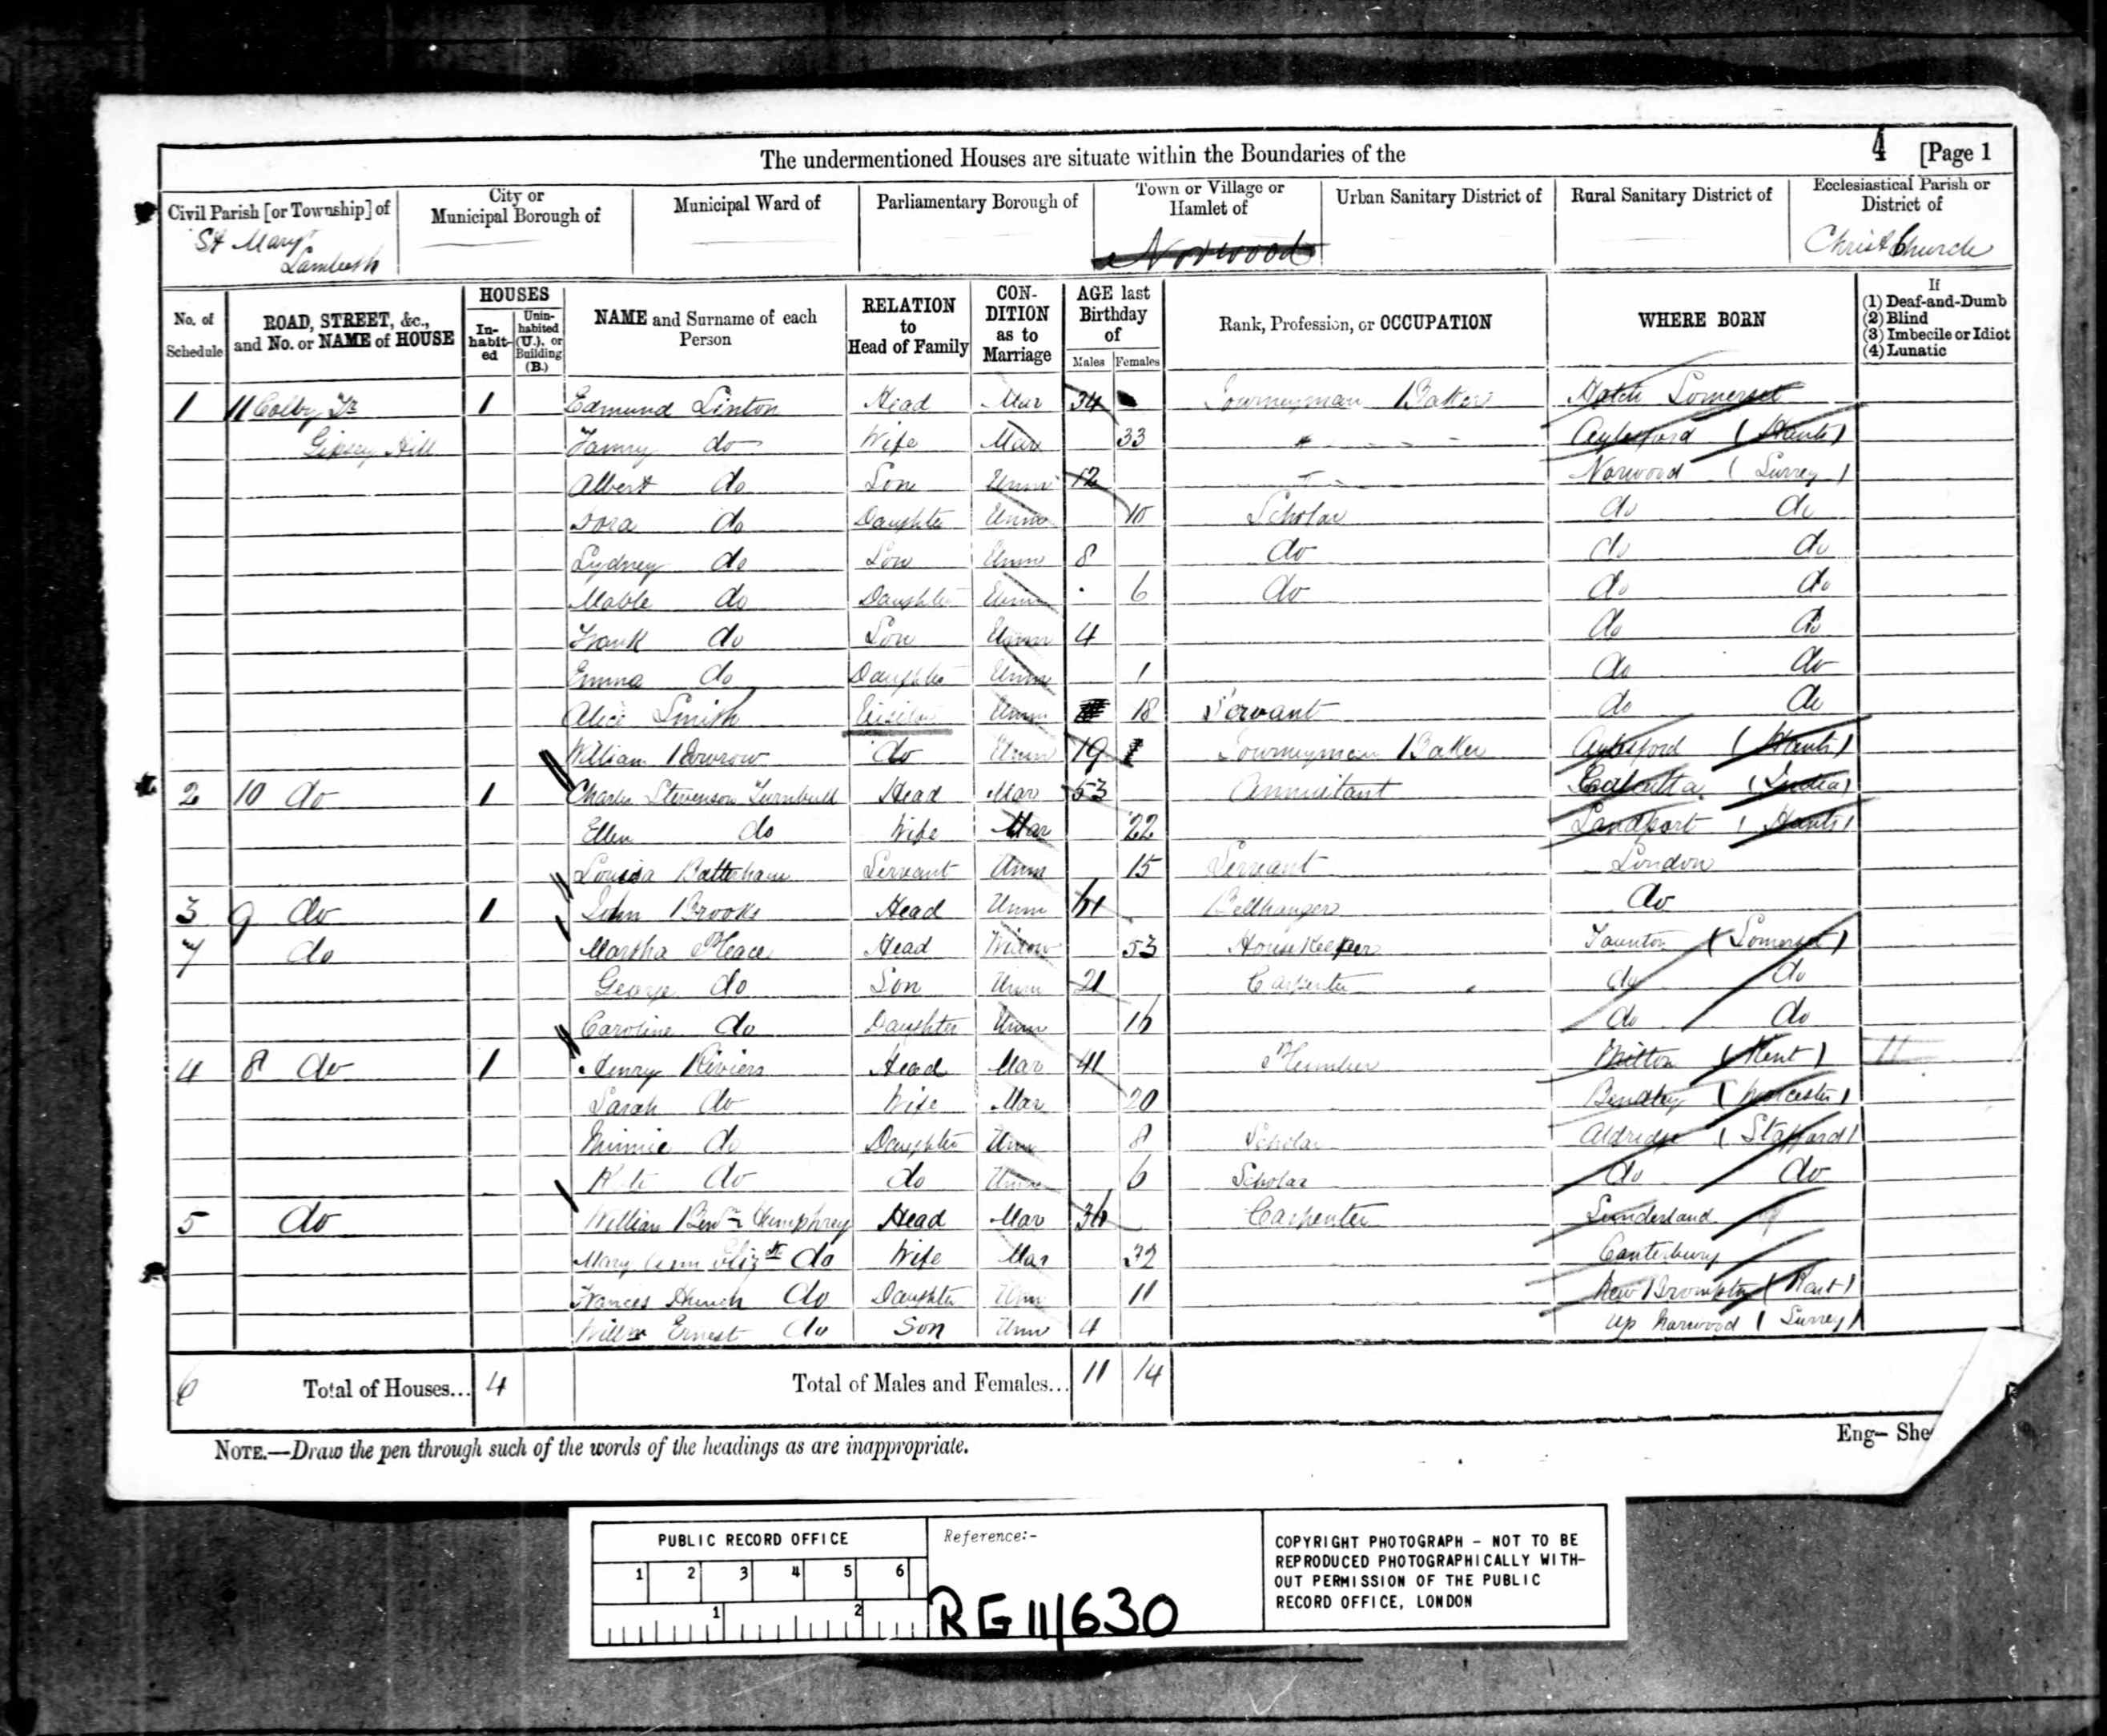 The undermentioned Houses are situate within the Boundaries of the 4 [Page 1
Civil Parish [or Township] of
St Mary
Lambeth
City or Municipal Borough of
Municipal Ward of
Parliamentary Borough of
Town or Village or Hamlet of
Norwood
Urban Sanitary District of
Rural Sanitary District of
Ecclesiastical Parish or District of
Christ Church
No. of Schedule
ROAD, STREET, &c., and No. or NAME of HOUSE
HOUSES
In-habit-ed
Unin-habited (U.), or Building (B.)
NAME and Surname of each Person
RELATION to Head of Family
CON-DITION as to Marriage
AGE last Birthday of
Males Females
Rank, Profession, or OCCUPATION
WHERE BORN
If
(1) Deaf-and-Dumb
(2) Blind
(3) Imbecile or Idiot
(4) Lunatic
1 11 Colby 1 Edmund Linton Head Mar 34 Journeyman Baker Hatch Somerset
Gipsey Hill Fanny do Wife Mar 33 Aylesford (Hants)
Albert do Son Unm 12 Norwood (Surrey)
Dora do Daughter Unm 10 Scholar do do
Sydney do Son Unm 8 do do do
Mable do Daughter Unm 6 do do do
Frank do Son Unm 4 do do
Emma do Daughter Unm 1 do do
Alice Smith Visitor Unm 18 Servant do do
William do Unm 19 Journeyman Baker Aylesford (Hants)
2 10 do 1 Charles Stevenson Turnbull Head Mar 53 Annuitant Calcutta (India)
Ellen do Wife Mar 22 Landport (Hants)
Louisa Batterham Servant Unm 15 Servant London
3 9 do 1 John Brooks Head Unm 61 Bellhanger do
7 do Martha Pleace Head Widow 53 HouseKeeper Taunton (Somerset)
George do Son Unm 21 Carpenter do do
Caroline do Daughter Unm 16 do do
4 8 do 1 Henry Riviers Head Mar 41 Plumber Milton (Kent)
Sarah do Wife Mar 20 Bewdley (Worcester)
Minnie do Daughter Unm 8 Scholar Aldridge (Stafford)
Kate do do Unm 6 Scholar do do
5 do William Benjn Humphrey Head Mar 36 Carpenter Sunderland
Mary Ann Elizth do Wife Mar 32 Canterbury
Frances do Daughter Unm 11 New Brompton (Kent)
Willm Ernest do Son Unm 4 Up Norwood (Surrey)
6 Total of Houses... 4 Total of Males and Females... 11 14
NOTE.—Draw the pen through such of the words of the headings as are inappropriate.
Eng— She
PUBLIC RECORD OFFICE
1 2 3 4 5 6
1 2
Reference:-
RG 11/630
COPYRIGHT PHOTOGRAPH – NOT TO BE
REPRODUCED PHOTOGRAPHICALLY WITH-
OUT PERMISSION OF THE PUBLIC
RECORD OFFICE, LONDON